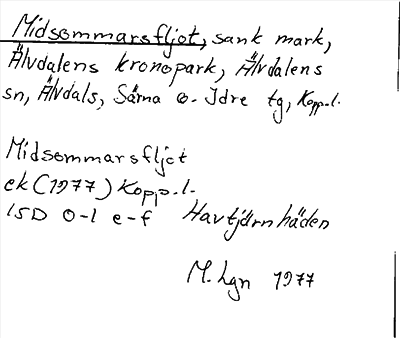 Midsommarsfljot, sank mark,
Älvdalens kronopark, Älvdalens
sn, Älvdals, Särna o. Idre tg, Kopp.l.
Midsommarsfljot
ek (1977) Kopp.l.
15D 0-1 e-f Havtjärnhäden
M. Lgn 1977